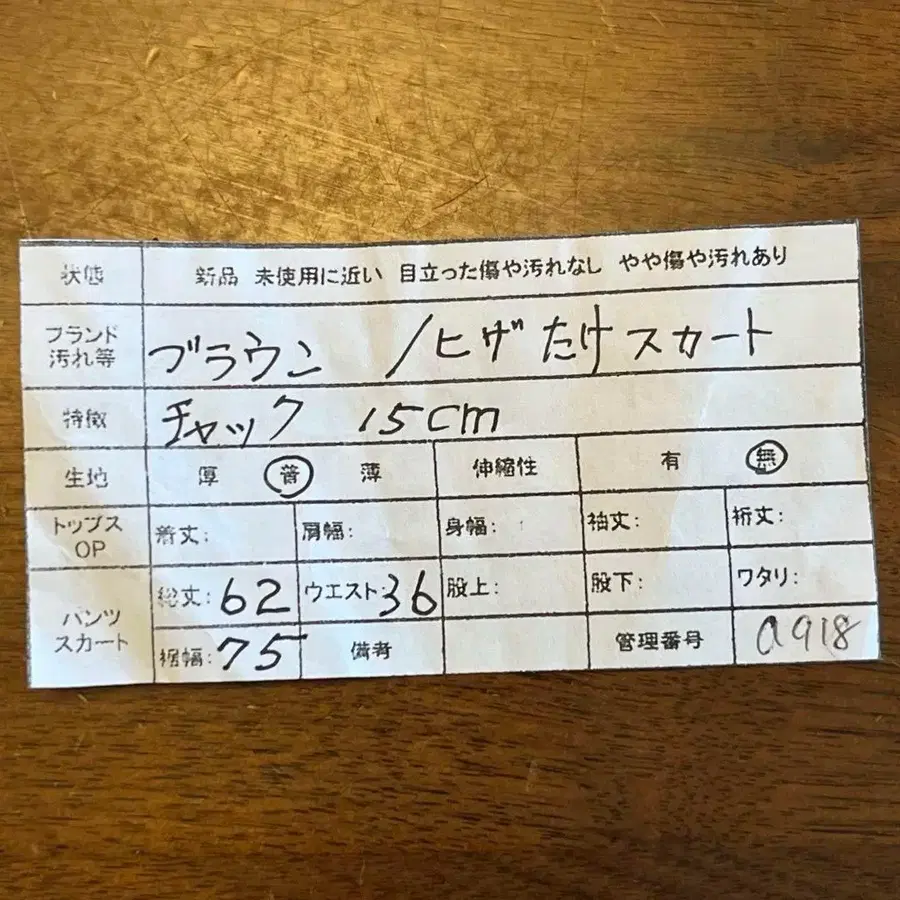 状態 新品 未使用に近い 目立った傷や汚れなし やや傷や汚れあり
ブランド
汚れ等 ブラウン /ヒザたけスカート
特徴 チャック 15cm
生地 厚 普 薄 伸縮性 有 無
トップス
OP 着丈: 肩幅: 身幅: 袖丈: 裄丈:
パンツ
スカート 総丈:62 ウエスト:36 股上: 股下: ワタリ:
裾幅:75 備考 管理番号 a918